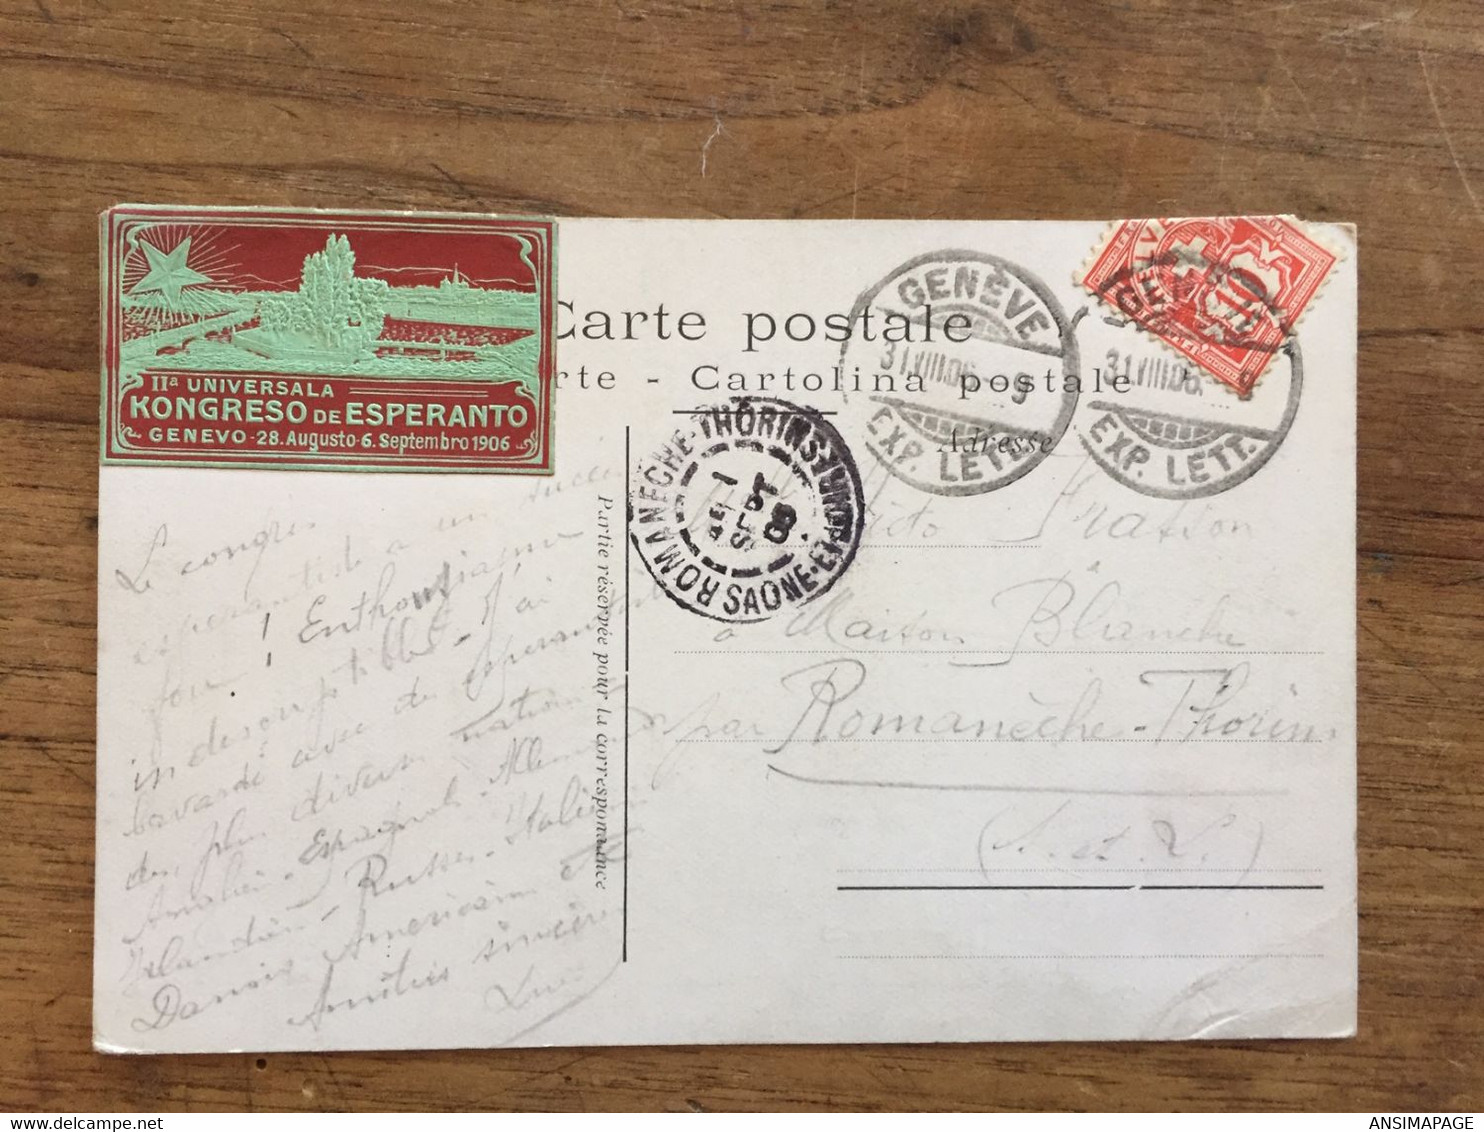 IIa UNIVERSALA
KONGRESO DE ESPERANTO
GENEVO - 28. Augusto - 6. Septembro 1906
Carte postale
rte - Cartolina postale
Adresse
GENÈVE
31.VIII.06. 9
EXP. LETT.
GENÈVE
31.VIII.06. 9
EXP. LETT.
10
ROMANÈCHE-THORINS
1
SEPT
06
SAONE-ET-LOIRE
Partie réservée pour la correspondance
Le congrès
espérantiste a un succès
fou ! Enthousiasme
indescriptible - J'ai
bavardé avec des espérantistes
des plus diverses nations
Anglais - Espagnols - Allemands
Irlandais - Russes - Italiens
Danois Américains etc
Amitiés sincères
Fraisson
à Maison Blanche
par Romanèche-Thorins
(S. et L.)
delcampe.net
ANSIMAPAGE